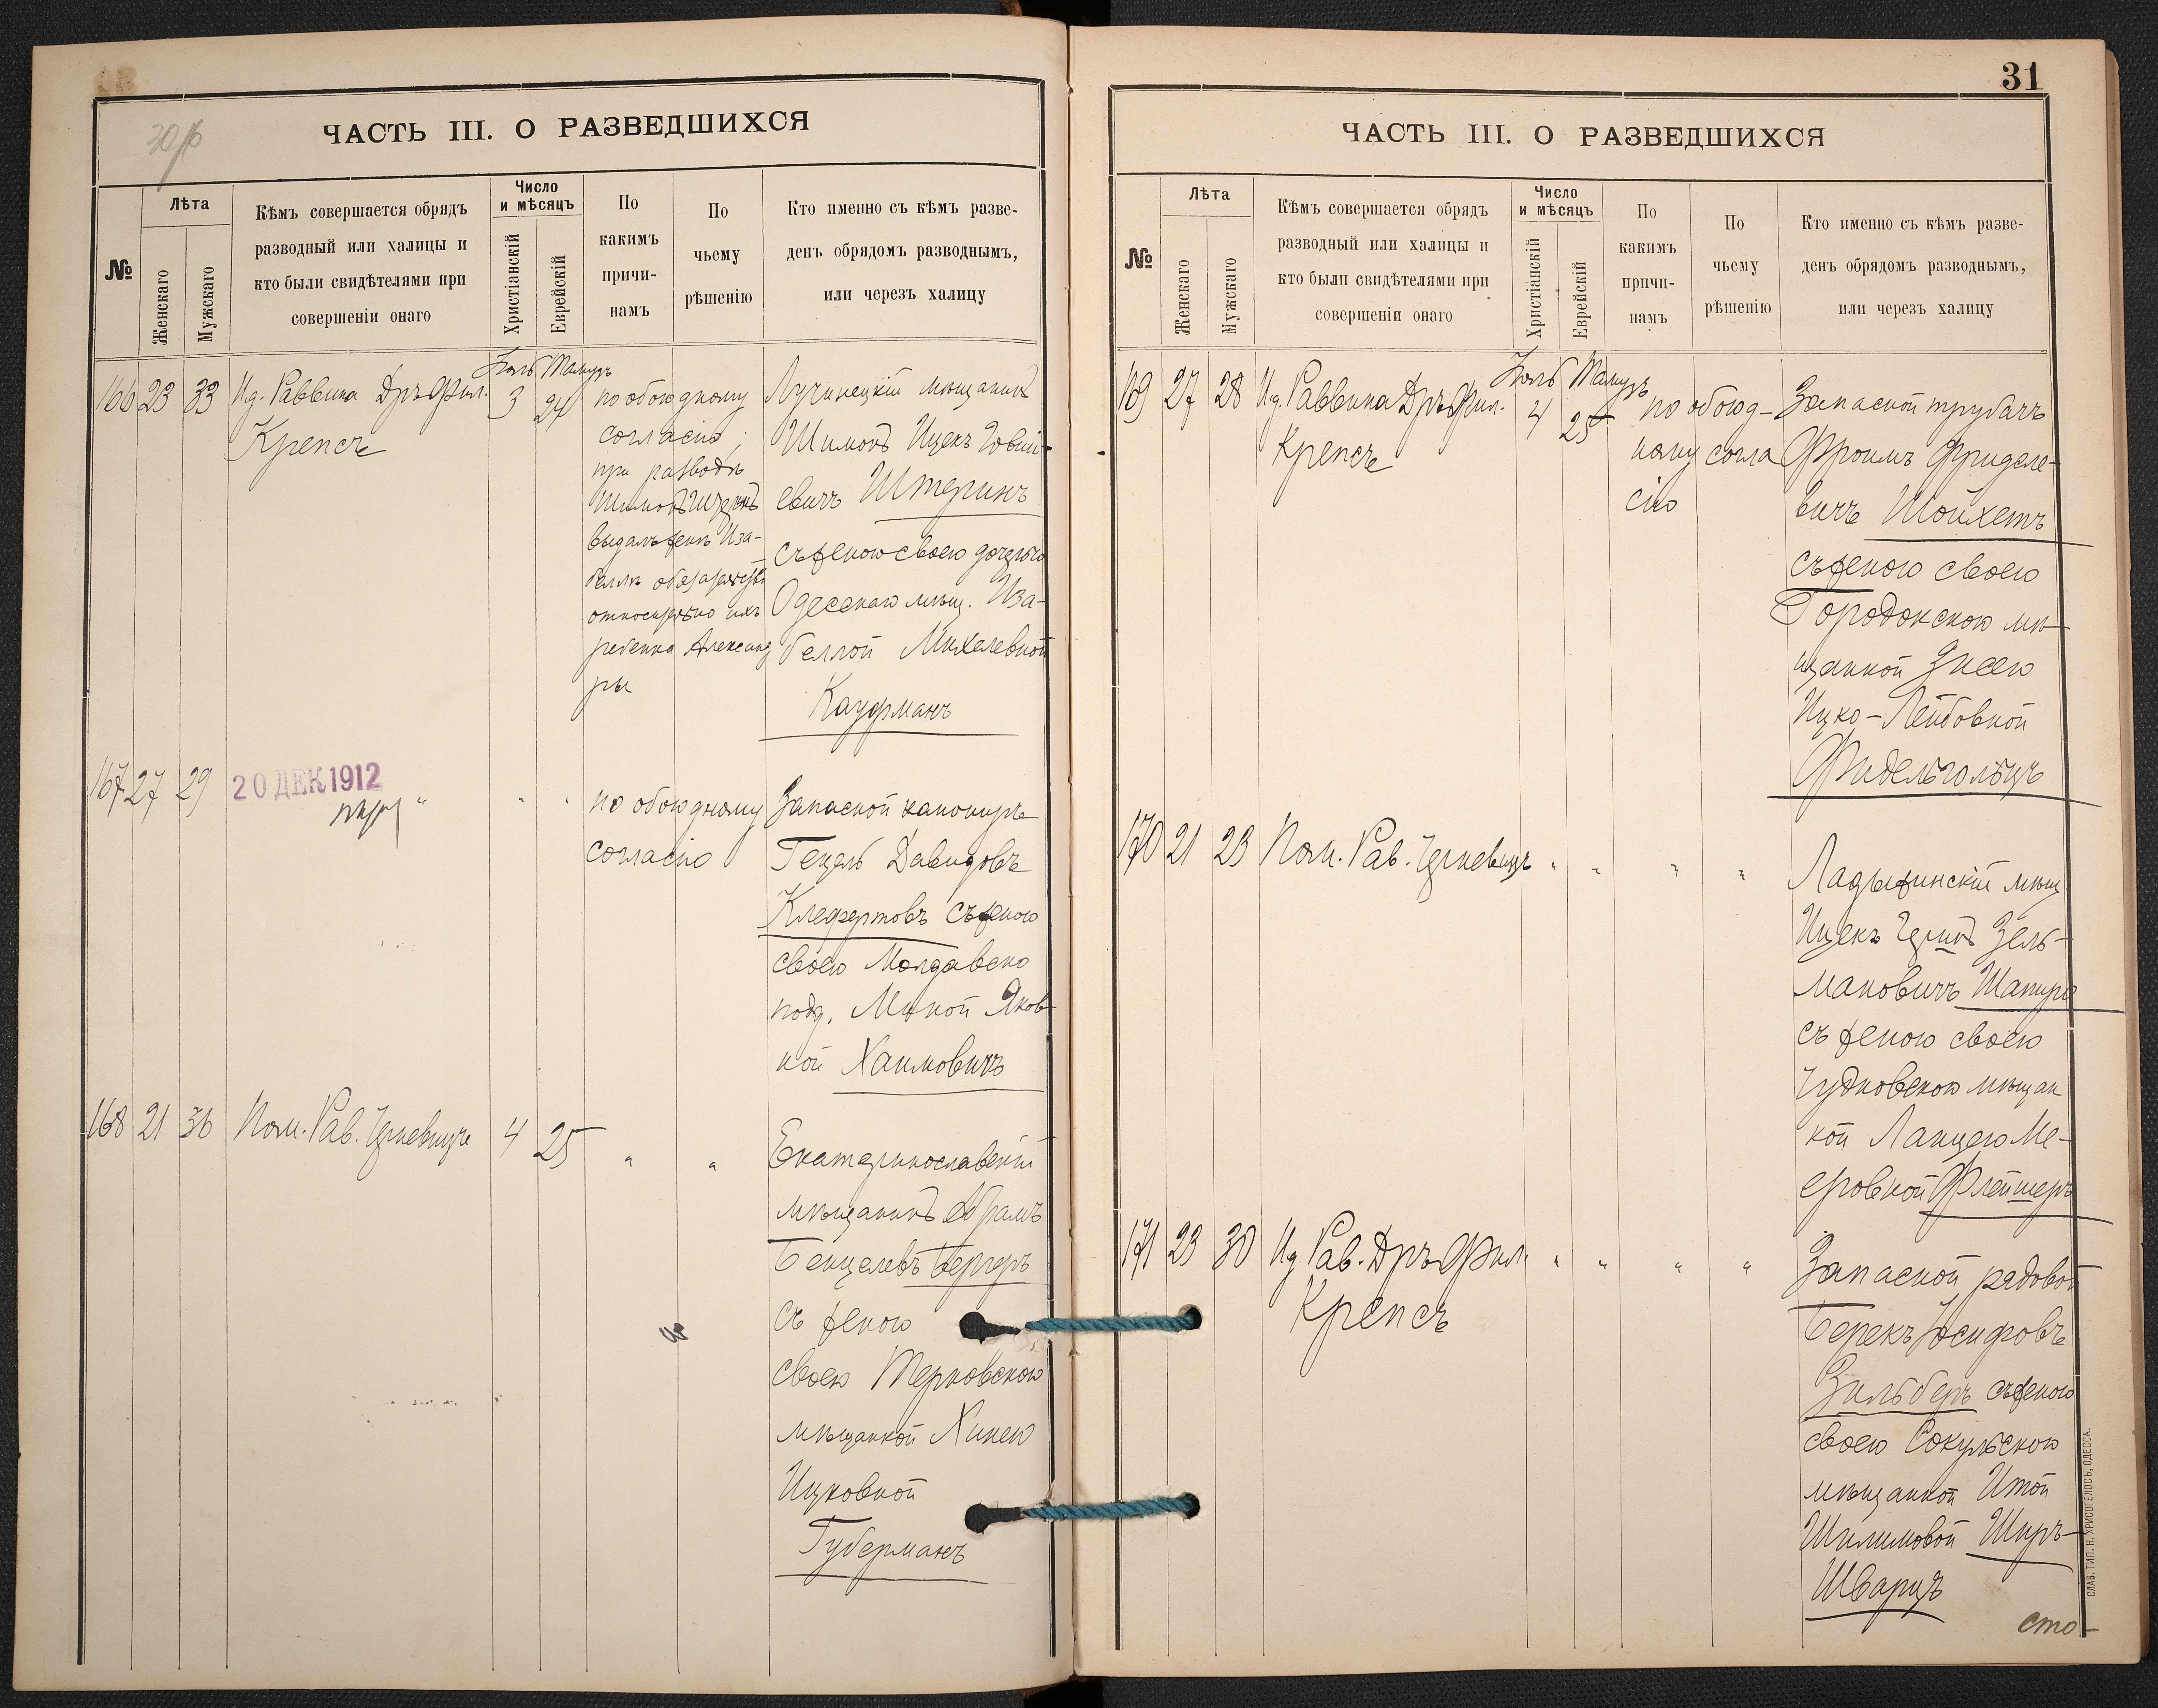 ЧАСТЬ III. О РАЗВЕДШИХСЯ
№
Лѣта
Женскаго
Мужскаго
Кѣмъ совершается обрядъ
разводный или халицы и
кто были свидѣтелями при
совершеніи онаго
Число
и мѣсяцъ
Христіанскій
Еврейскій
По
какимъ
причи-
намъ
По
чьему
рѣшенію
Кто именно съ кѣмъ разве-
денъ обрядомъ разводнымъ,
или черезъ халицу
166 23 33
Ид. Раввина Дръ Фил.
Крепсъ
Іюль Тамузъ
3 24
по обоюдному
согласію;
при разводѣ
Шимонъ Штеринъ
выдалъ женѣ Иза-
беллѣ обязательство
относительно ихъ
ребенка Александ
ры
Лучинецкій мѣщанинъ
Шимонъ Ицекъ Говші-
евичъ Штеринъ
съ женою своею дочерью
Одесскаго мѣщ. Иза-
беллой Михелевной
Кауфманъ
167 27 29
20 ДЕК 1912
" " "
по обоюдному
согласію
Запасной канониръ
Гецель Давидовъ
Клефертовъ съ женою
своею Молдавско
подд. Миной Яков
ной Хаимовичъ
168 21 36
Пом. Рав. Черневицъ
4 25
" "
Екатеринославскій
мѣщанинъ Абрамъ
Бенцелевъ Бергеръ
съ женою
своею Терновскою
мѣщанкой Хинею
Ицковной
Губерманъ
31
ЧАСТЬ III. О РАЗВЕДШИХСЯ
№
Лѣта
Женскаго
Мужскаго
Кѣмъ совершается обрядъ
разводный или халицы и
кто были свидѣтелями при
совершеніи онаго
Число
и мѣсяцъ
Христіанскій
Еврейскій
По
какимъ
причи-
намъ
По
чьему
рѣшенію
Кто именно съ кѣмъ разве-
денъ обрядомъ разводнымъ,
или черезъ халицу
169 27 28
Ид. Раввина Дръ Фил.
Крепсъ
Іюль Тамузъ
4 25
по обоюд-
ному согла
сію
Запасной трубачъ
Фроимъ Фриделе-
вичъ Шойхетъ
съ женою своею
Городокскою мѣ-
щанкой Энею
Ицко-Лейбовной
Фидельгольцъ
170 21 23
Пом. Рав. Черневицъ
" " " "
Ладыжинскій мѣщ
Ицекъ Герцъ Зель-
мановичъ Шапиро
съ женою своею
Чудновскою мѣщан
кой Ланцею Ме-
еровной Флейшеръ
171 23 30
Ид. Рав. Дръ Фил.
Крепсъ
" " " "
Запасной рядовой
Берекъ Іосифовъ
Зильберъ съ женою
своею Сокульскою
мѣщанкой Итой
Шилимовой Ширъ-
Шварцъ
сто-
СЛАВ. ТИП. Н. ХРИСОГЕЛОСЪ, ОДЕССА.